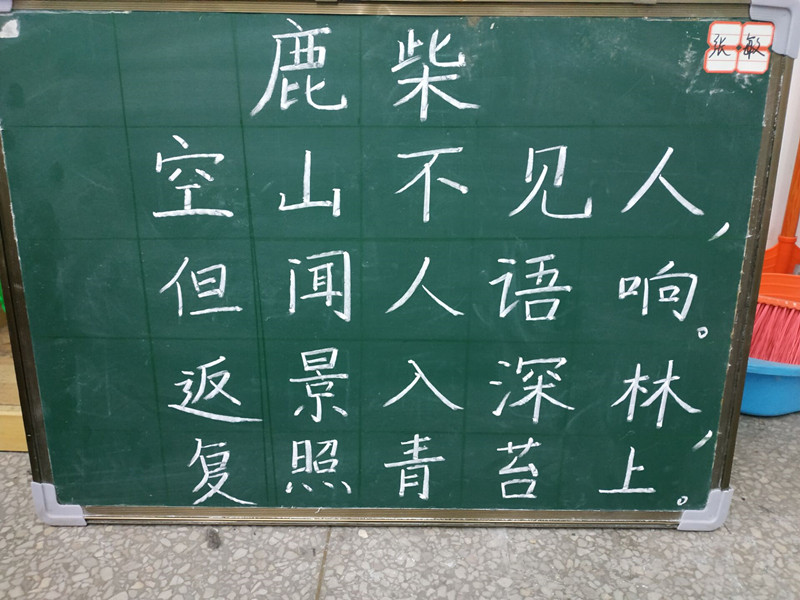 鹿柴
张敏
空山不见人，
但闻人语响。
返景入深林，
复照青苔上。